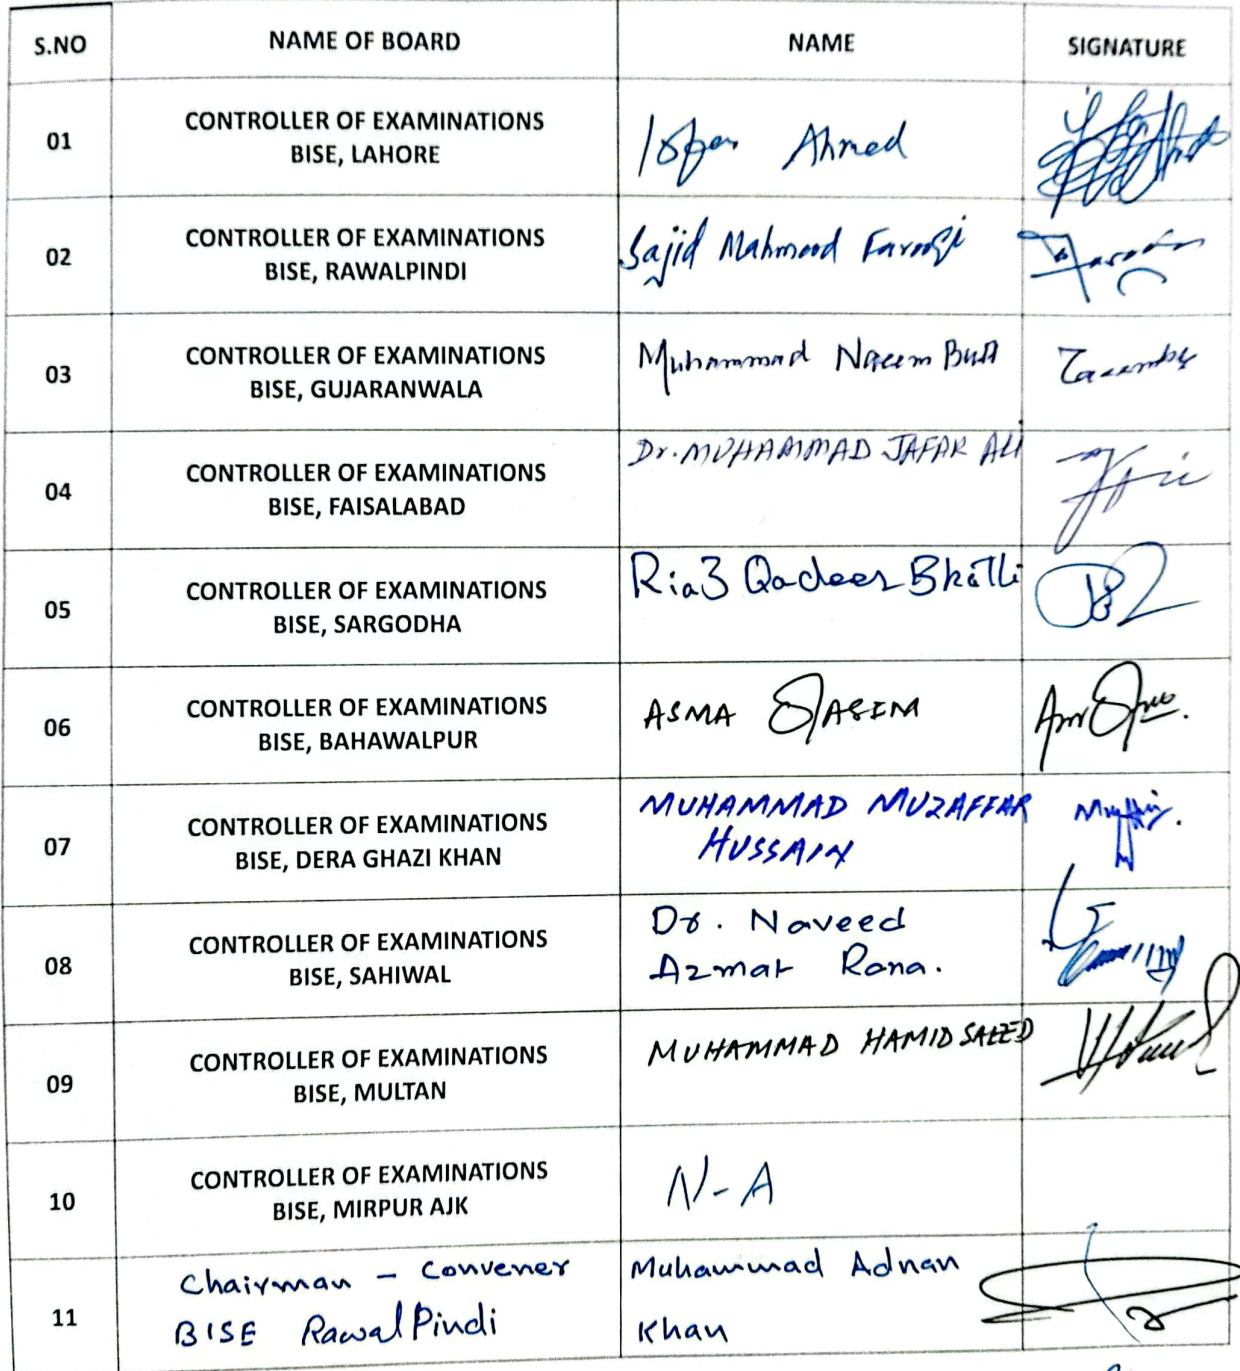 S.NO NAME OF BOARD NAME SIGNATURE
01 CONTROLLER OF EXAMINATIONS
BISE, LAHORE
Ahmed
02 CONTROLLER OF EXAMINATIONS
BISE, RAWALPINDI
Sajid Mahmood Farooqi
03 CONTROLLER OF EXAMINATIONS
BISE, GUJARANWALA
Muhammad Naeem Butt
04 CONTROLLER OF EXAMINATIONS
BISE, FAISALABAD
Dr. MUHAMMAD JAFAR ALI
05 CONTROLLER OF EXAMINATIONS
BISE, SARGODHA
Riaz Qadeer Bhatti
06 CONTROLLER OF EXAMINATIONS
BISE, BAHAWALPUR
ASMA QASIM
07 CONTROLLER OF EXAMINATIONS
BISE, DERA GHAZI KHAN
MUHAMMAD MUZAFFAR
HUSSAIN
08 CONTROLLER OF EXAMINATIONS
BISE, SAHIWAL
Dr. Naveed
Azmat Rana.
09 CONTROLLER OF EXAMINATIONS
BISE, MULTAN
MUHAMMAD HAMID SAEED
10 CONTROLLER OF EXAMINATIONS
BISE, MIRPUR AJK
N-A
11 Chairman - Convener
BISE RawalPindi
Muhammad Adnan
Khan